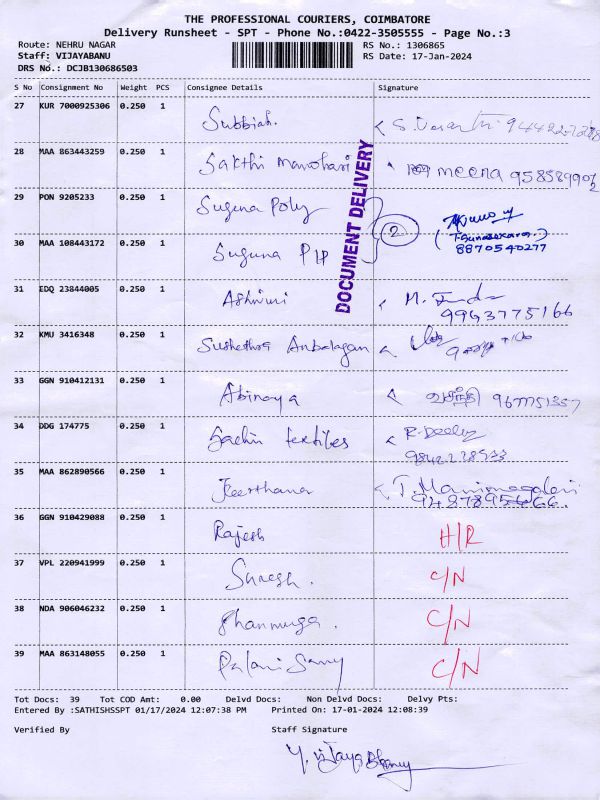 THE PROFESSIONAL COURIERS, COIMBATORE
Delivery Runsheet - SPT - Phone No.:0422-3505555 - Page No.:3
Route: NEHRU NAGAR RS No.: 1306865
Staff: VIJAYABANU RS Date: 17-Jan-2024
DRS No.: DCJB130686503
S No Consignment No Weight PCS Consignee Details Signature
27 KUR 7000925306 0.250 1 Subbiah.
28 MAA 863443259 0.250 1 Sakthi Manohari meena
29 PON 9205233 0.250 1 Suguna Poly
DOCUMENT DELIVERY
2
8870540277
30 MAA 108443172 0.250 1 Suguna PIP
31 EDQ 23844005 0.250 1 Ashwini M.
9963775166
32 KMU 3416348 0.250 1 Anbalagan
33 GGN 910412131 0.250 1 Abinaya
34 DDG 174775 0.250 1 Sachin textiles
35 MAA 862890566 0.250 1 Keerthana
36 GGN 910429088 0.250 1 Rajesh H/R
37 VPL 220941999 0.250 1 Suresh. C/N
38 NDA 906046232 0.250 1 Shanmuga. C/N
39 MAA 863148055 0.250 1 Palani Samy C/N
Tot Docs: 39 Tot COD Amt: 0.00 Delvd Docs: Non Delvd Docs: Delvy Pts:
Entered By :SATHISHSSPT 01/17/2024 12:07:38 PM Printed On: 17-01-2024 12:08:39
Verified By Staff Signature
Y. Vijaya Bhanu